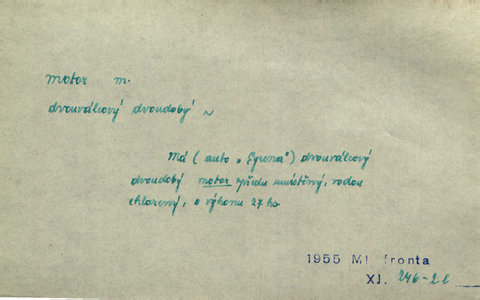 motor m.
dvouválcový dvoudobý ~
Má (auto „Syrena") dvouválcový
dvoudobý motor vpředu umístěný, vodou
chlazený, o výkonu 27 ks
1955 Ml fronta
XI. 246-2